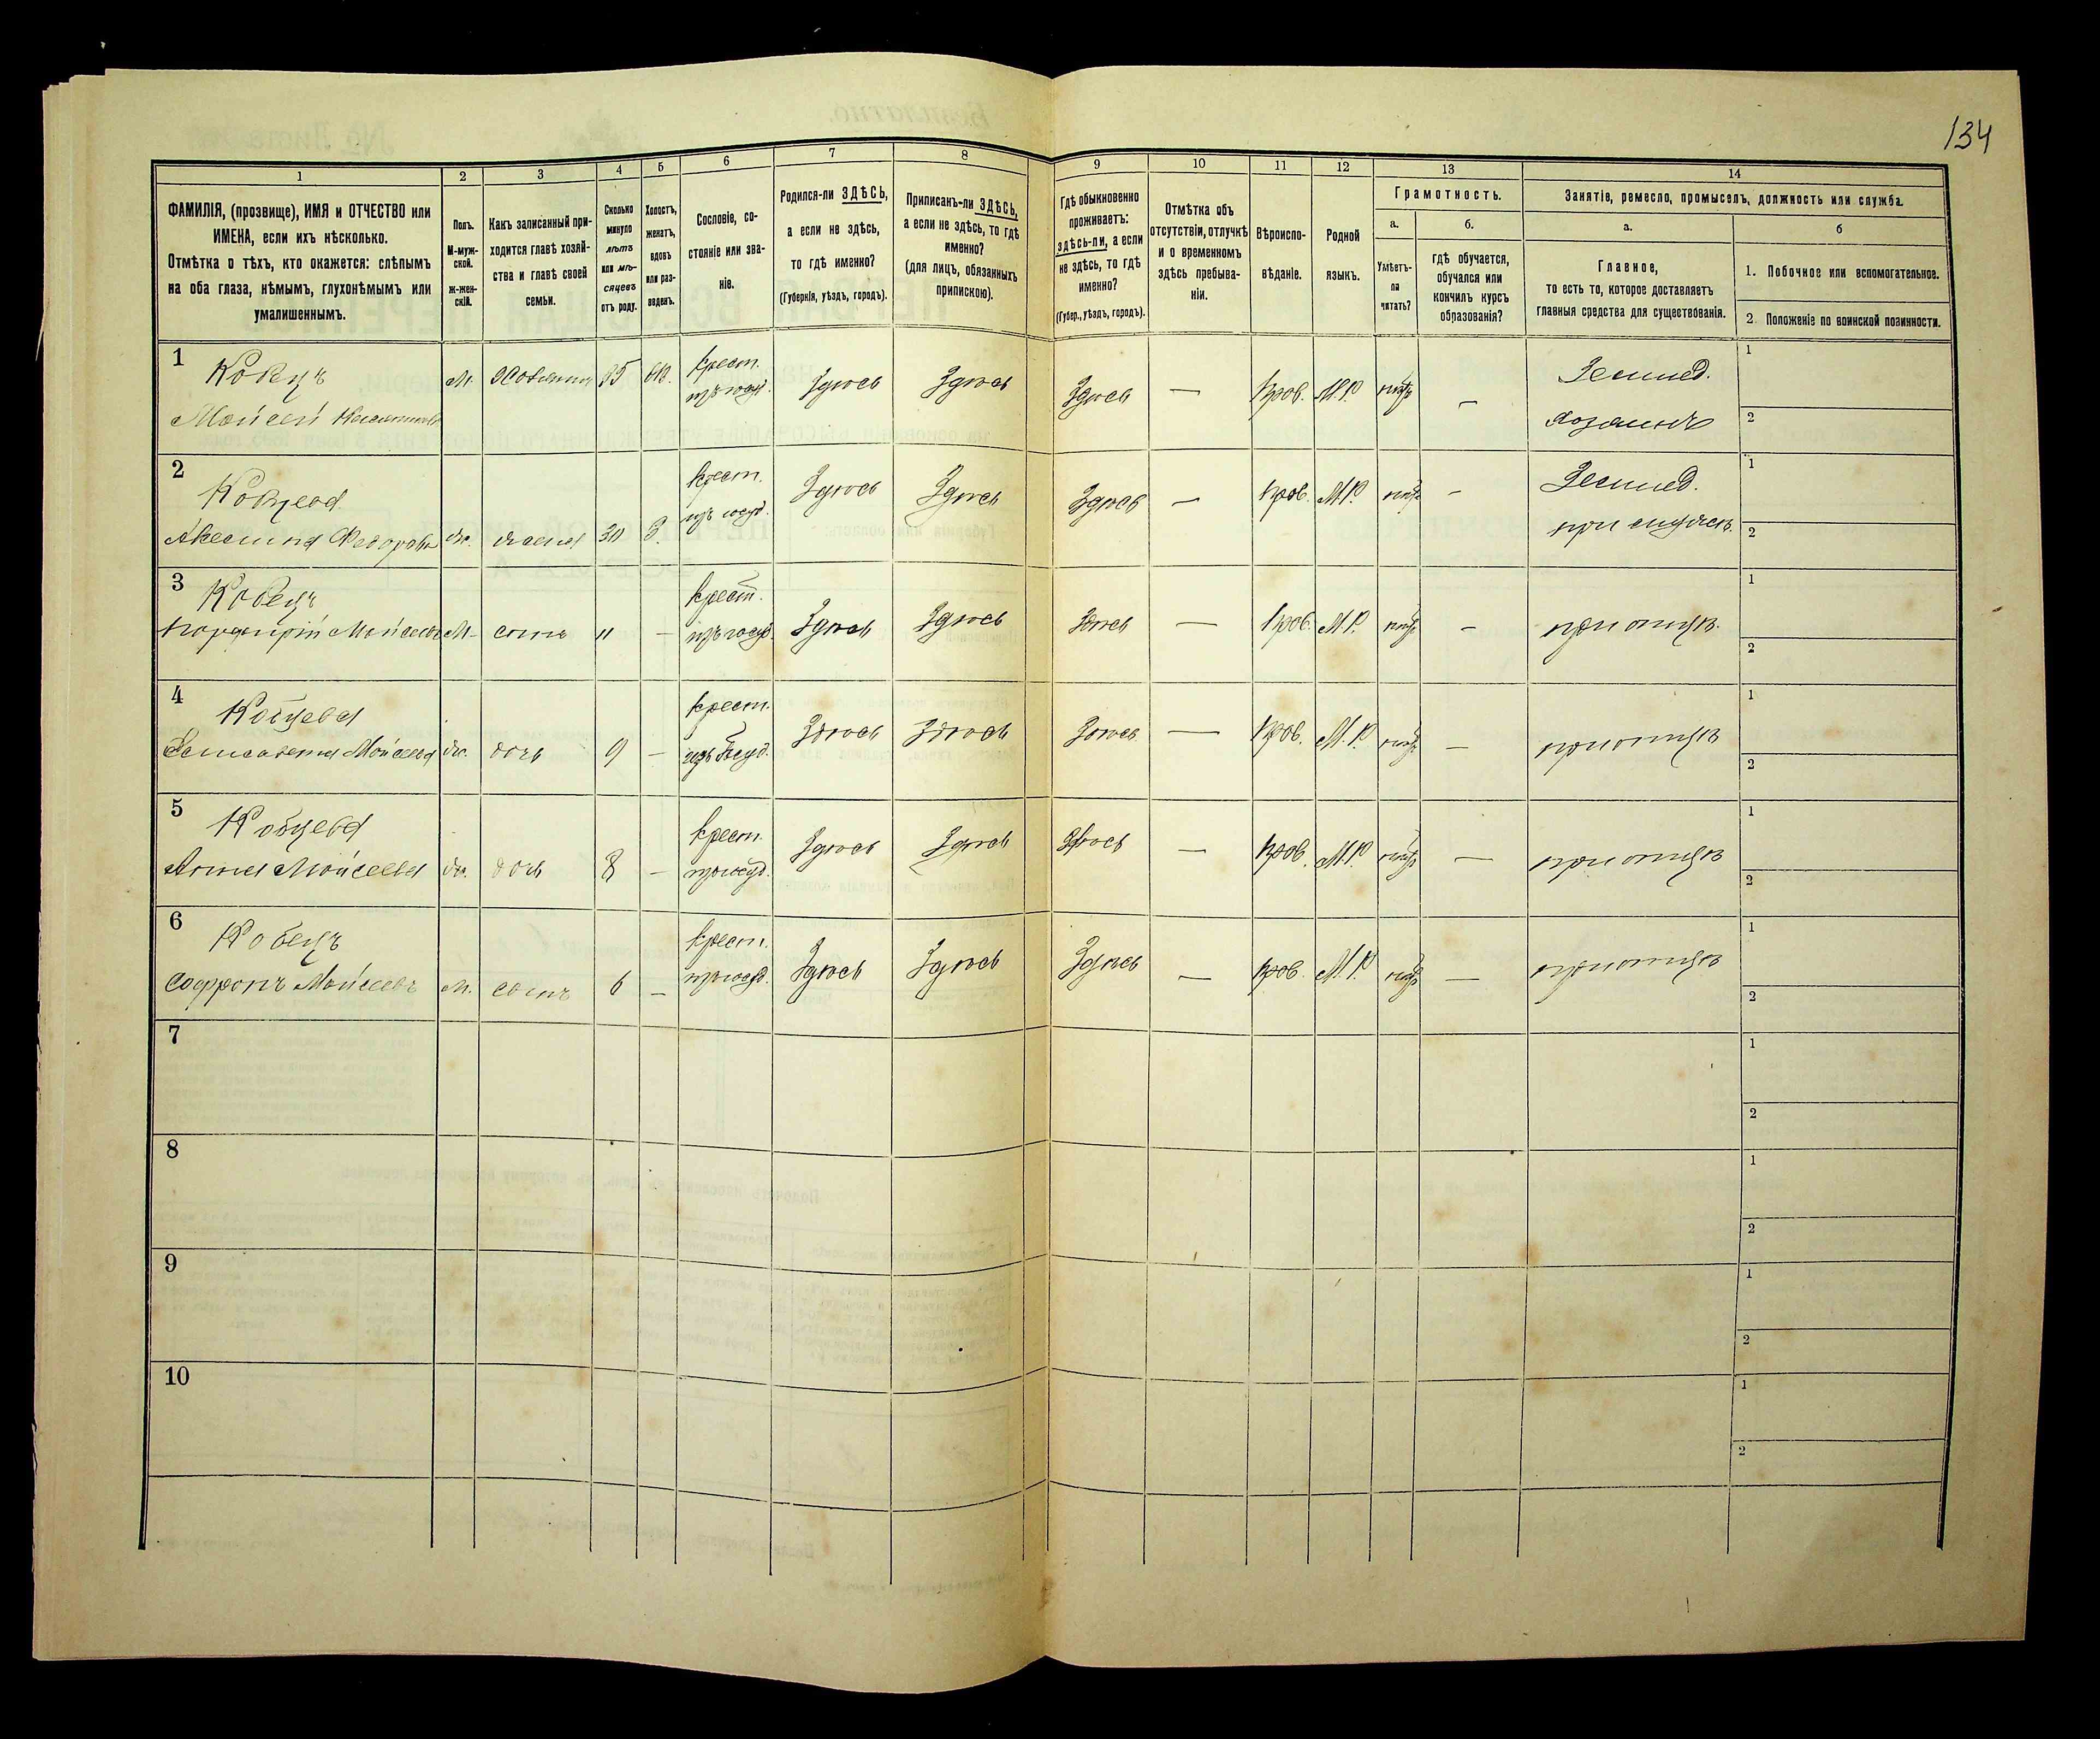 134
1 2 3 4 5 6 7 8 9 10 11 12 13 14
ФАМИЛІЯ, (прозвище), ИМЯ и ОТЧЕСТВО или
ИМЕНА, если ихъ нѣсколько.
Отмѣтка о тѣхъ, кто окажется: слѣпымъ
на оба глаза, нѣмымъ, глухонѣмымъ или
умалишеннымъ.
Полъ.
М-муж-
ской.
ж-жен-
скій.
Какъ записанный при-
ходится главѣ хозяй-
ства и главѣ своей
семьи.
Сколько
минуло
лѣтъ
или мѣ-
сяцевъ
отъ роду.
Холостъ,
женатъ,
вдовъ
или раз-
веденъ.
Сословіе, со-
стояніе или зва-
ніе.
Родился-ли ЗДѢСЬ,
а если не здѣсь,
то гдѣ именно?
(Губернія, уѣздъ, городъ).
Приписанъ-ли ЗДѢСЬ,
а если не здѣсь, то гдѣ
именно?
(для лицъ, обязанныхъ
припискою).
Гдѣ обыкновенно
проживаетъ:
здѣсь-ли, а если
не здѣсь, то гдѣ
именно?
(Губер., уѣздъ, городъ).
Отмѣтка объ
отсутствіи, отлучкѣ
и о временномъ
здѣсь пребыва-
ніи.
Вѣроиспо-
вѣданіе.
Родной
языкъ.
Грамотность.
а.
Умѣетъ-
ли
читать?
б.
гдѣ обучается,
обучался или
кончилъ курсъ
образованія?
Занятіе, ремесло, промыселъ, должность или служба.
а.
Главное,
то есть то, которое доставляетъ
главныя средства для существованія.
б
1. Побочное или вспомогательное.
2. Положеніе по воинской повинности.
1
Кобецъ
Мойсей
М. Хозяинъ
крест.
изъ госуд.
Здѣсь Здѣсь Здѣсь — Прав. М.Р. нѣтъ —
Землед.
хозяинъ
1
2
2
Кобцева
Аксинія Федорова
ж. жена 30 З.
крест.
изъ госуд.
Здѣсь Здѣсь Здѣсь — Прав. М.Р. нѣтъ —
Землед.
при мужѣ
1
2
3
Кобецъ
Порфирій Мойсеевъ
М. сынъ 11 —
крест.
изъ госуд.
Здѣсь Здѣсь Здѣсь — Прав. М.Р. нѣтъ —
при отцѣ
1
2
4
Кобцева
Елисавета Мойсеева
ж. дочь 9 —
крест.
изъ Госуд.
Здѣсь Здѣсь Здѣсь — Прав. М.Р. нѣтъ —
при отцѣ
1
2
5
Кобцева
Анна Мойсеева
ж. дочь 8 —
крест.
изъ госуд.
Здѣсь Здѣсь Здѣсь — Прав. М.Р. нѣтъ —
при отцѣ
1
2
6
Кобецъ
Софронъ Мойсеевъ
М. сынъ 6 —
крест.
изъ госуд.
Здѣсь Здѣсь Здѣсь — Прав. М.Р. нѣтъ —
при отцѣ
1
2
7
1
2
8
1
2
9
1
2
10
1
2